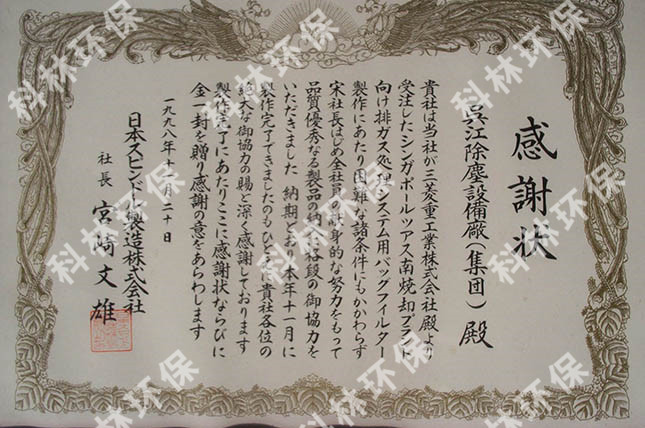 感謝状
呉江除塵設備廠(集団) 殿
貴社は当社が三菱重工業株式会社殿より
受注したシンガポールツアス南焼却プラント
向け排ガス処理システム用バッグフィルター
製作にあたり困難な諸条件にもかかわらず
宋社長はじめ全社員の献身的な努力をもって
品質優秀なる製品の納入に格段の御協力を
いただきました 納期どおり本年十一月に
製作完了できましたのもひとえに貴社各位の
絶大な御協力の賜と深く感謝しております
製作完了にあたりここに感謝状ならびに
金一封を贈り感謝の意をあらわします
一九九八年十二月二十日
日本スピンドル製造株式会社
社長 宮崎文雄
科林环保
科林环保
科林环保
科林环保
科林环保
科林环保
科林环保
科林环保
科林环保
科林环保
科林环保
科林环保